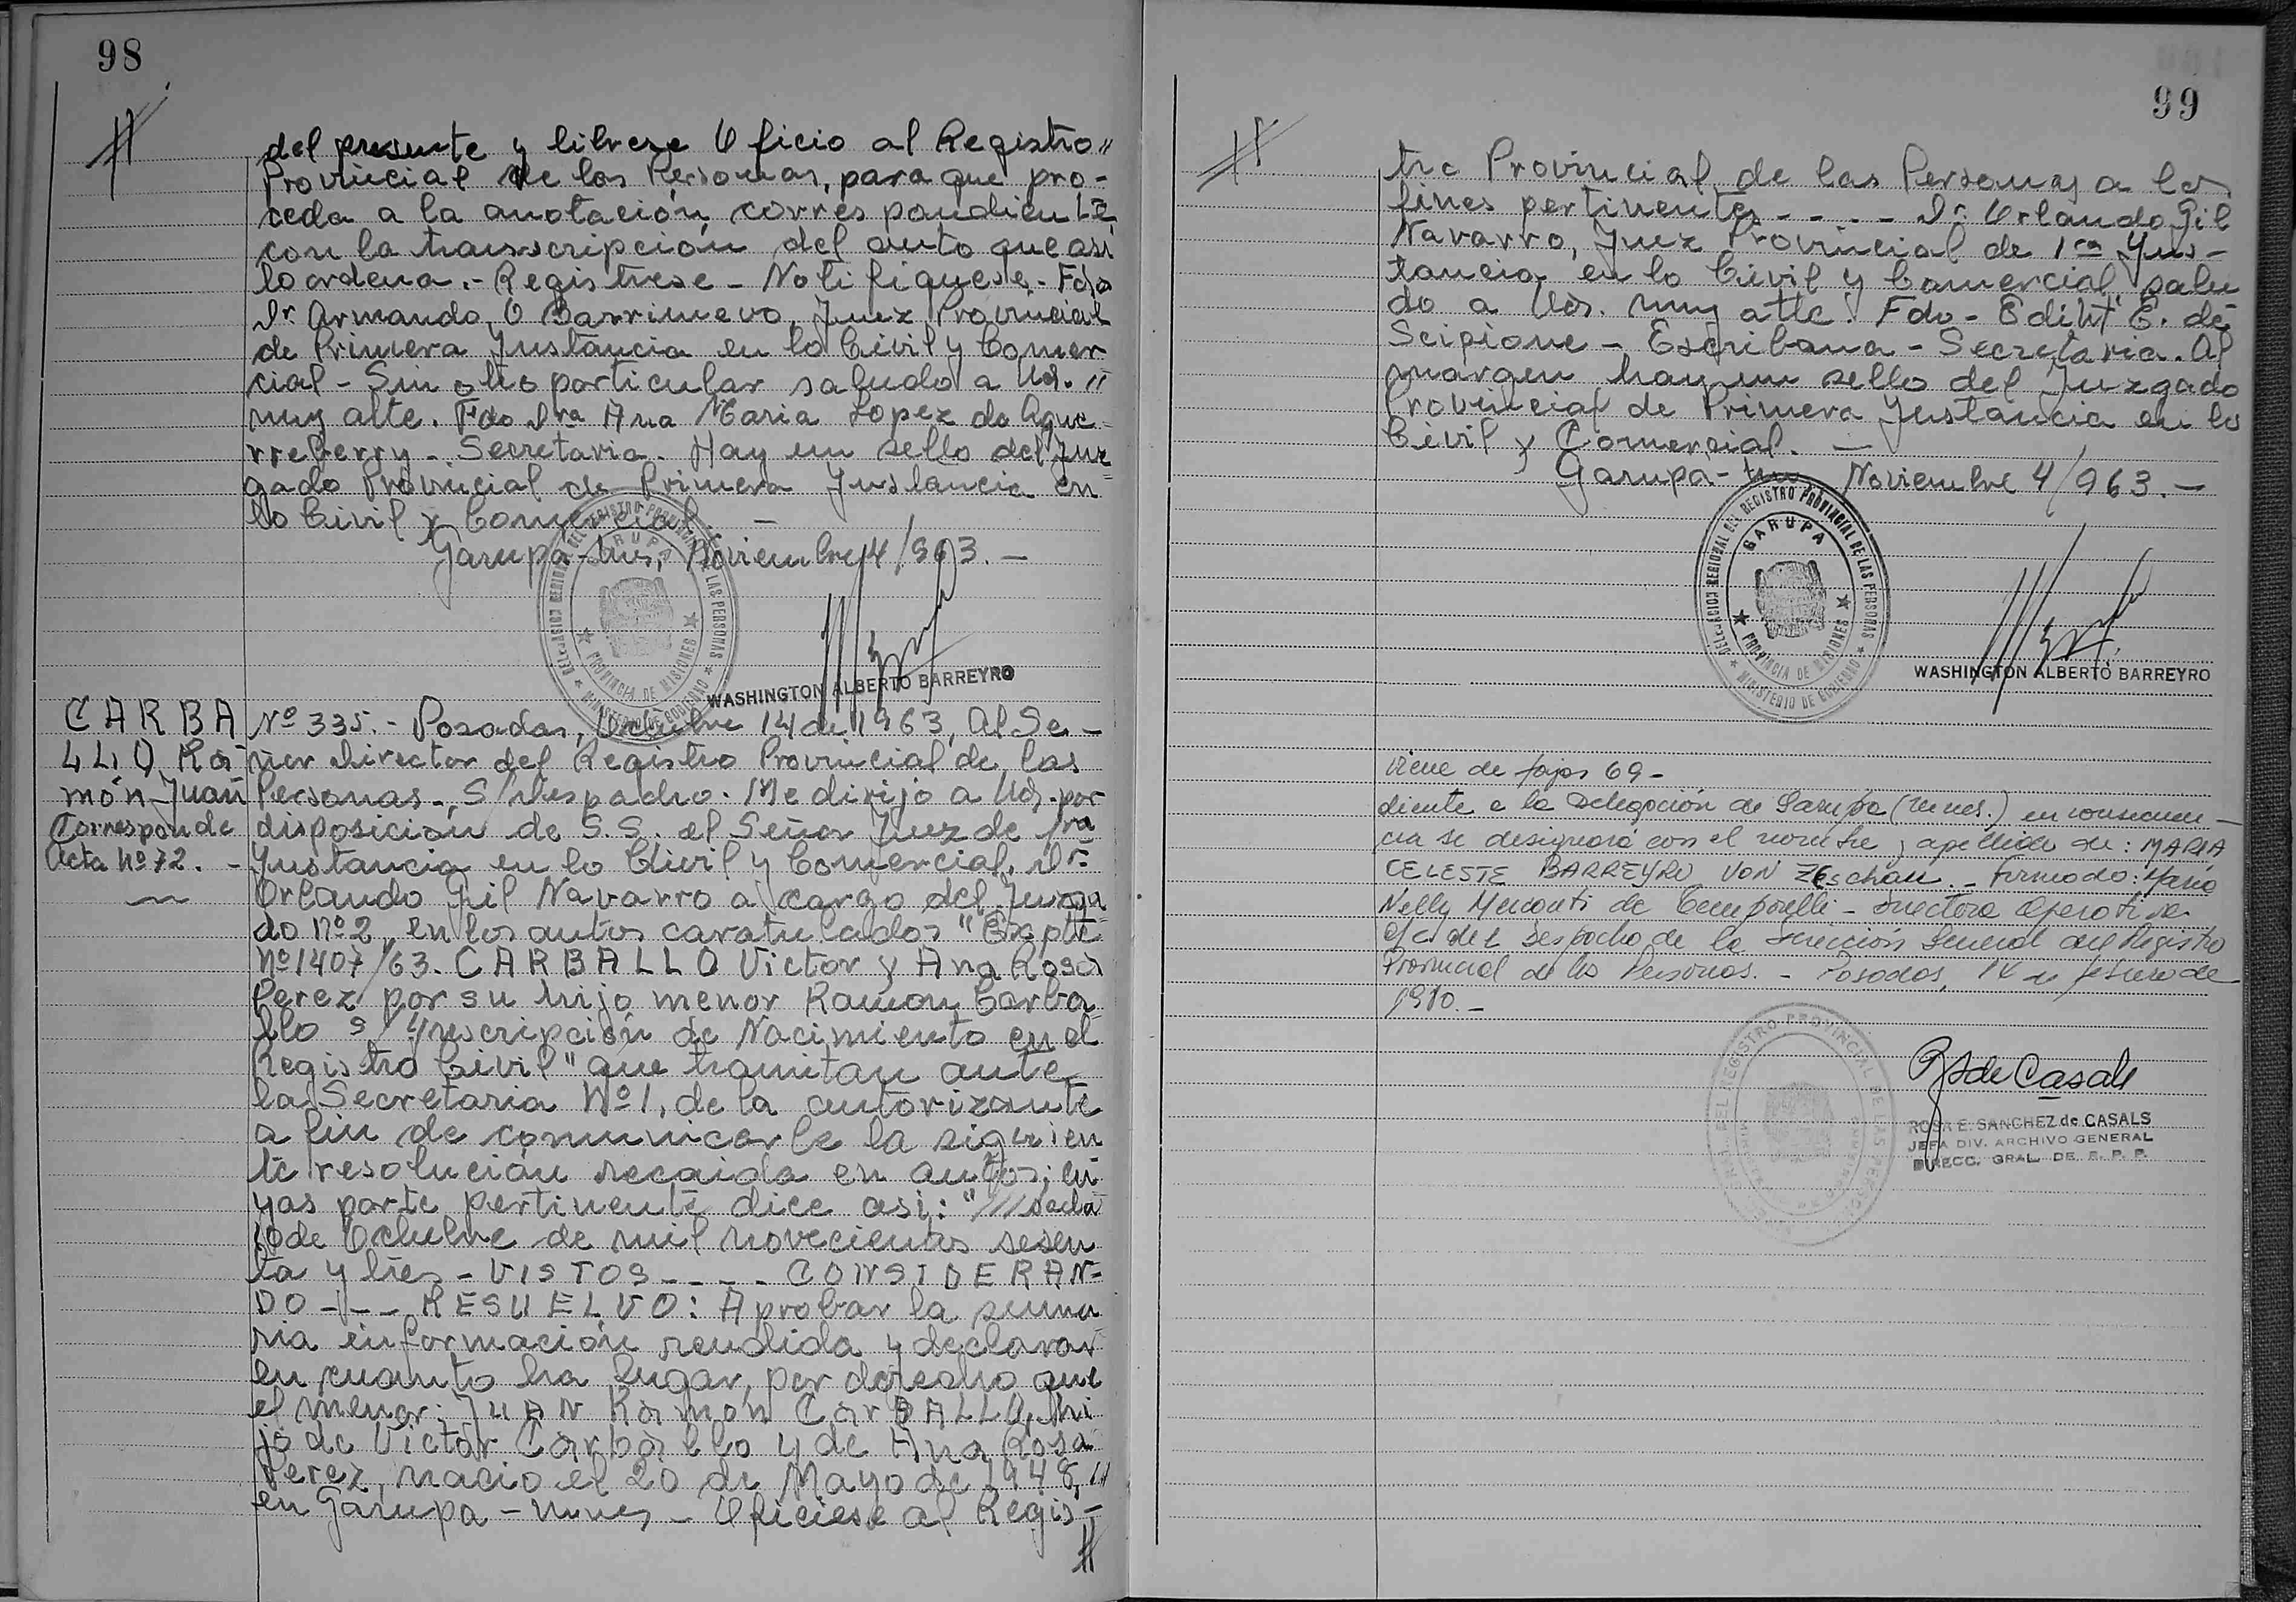 98
del presente y librese Oficio al Registro"
Provincial de las Personas, para que pro-
ceda a la anotación correspondiente
con la transscripción del auto que así
lo ordena.- Registrese - Notifiquese.- Fdo
Dr Armando O Barrinuevo, Juez Provincial
de Primera Instancia en lo Civil y Comer
cial - Sin otro particular saludo a Ud. "
muy atte. Fdo Dra Ana Maria Lopez de Ague-
rreberry - Secretaria. Hay un sello del Juz
gado Provincial de Primera Instancia en
lo Civil y Comercial -
Garupá - Mns, Noviembre 4/963.-
DELEGACION REGIONAL DEL REGISTRO PROVINCIAL DE LAS PERSONAS
GARUPA
PROVINCIA DE MISIONES
MINISTERIO DE GOBIERNO
WASHINGTON ALBERTO BARREYRO
CARBA
LLO Ra-
món Juan
Corresponde
Acta Nº 72. -
Nº 335.- Posadas, Octubre 14 de 1963, Al Se-
ñor Director del Registro Provincial de las
Personas - S/Despacho. Me dirijo a Ud. por
disposición de S.S. el Señor Juez de 1ra
Instancia en lo Civil y Comercial, Dr.
Orlando Gil Navarro a cargo del Juzga
do nº 2 en los autos caratulados "Expte
Nº 1407/63. CARBALLO Victor y Ana Rosa
Perez por su hijo menor Ramon Carba-
llo s/ Inscripción de Nacimiento en el
Registro Civil" que tramitan ante
la Secretaria Nº 1, de la autorizante
a fin de comunicarle la siguien
te resolución recaida en autos; cu-
yas parte pertinente dice asi: "///sadas
10 de Octubre de mil novecientos sesen
ta y tres - VISTOS - - - - CONSIDERAN-
DO - - - RESUELVO: Aprobar la suma
ria información rendida y declarar
en cuanto ha lugar, por derecho que
el menor: JUAN Ramon CarBALLO, hi
jo de Victor Carballo y de Ana Rosa
Perez, nacio el 20 de Mayo de 1948, "
en Garupa - mnes - Oficiese al Regis-
99
tro Provincial de las Personas a los
fines pertinentes - - - - Dr. Orlando Gil
Navarro, Juez Provincial de 1ra Ins-
tancia en lo Civil y Comercial, salu
do a Uds. muy atte. Fdo - Ediht E. de
Scipione - Escribana - Secretaria. Al
margen hay un sello del Juzgado
Provincial de Primera Instancia en lo
Civil y Comercial. -
Garupa - Noviembre 4/963.-
DELEGACION REGIONAL DEL REGISTRO PROVINCIAL DE LAS PERSONAS
GARUPA
PROVINCIA DE MISIONES
MINISTERIO DE GOBIERNO
WASHINGTON ALBERTO BARREYRO
Viene de fojas 69 -
diente a la Delegación de Garupa (Mnes.) en consecuen-
cia se designará con el nombre y apellido de: MARIA
CELESTE BARREYRO VON ZESchau. - Firmado: Maria
Nelly de - Directora Operativa
a/c del Despacho de la Dirección General del Registro
Provincial de las Personas. - Posadas, de febrero de
1980.-
REGISTRO PROVINCIAL DE LAS PERSONAS
RS de Casals
ROSA E. SANCHEZ de CASALS
JEFA DIV. ARCHIVO GENERAL
DIRECC. GRAL. DE R. P. P.